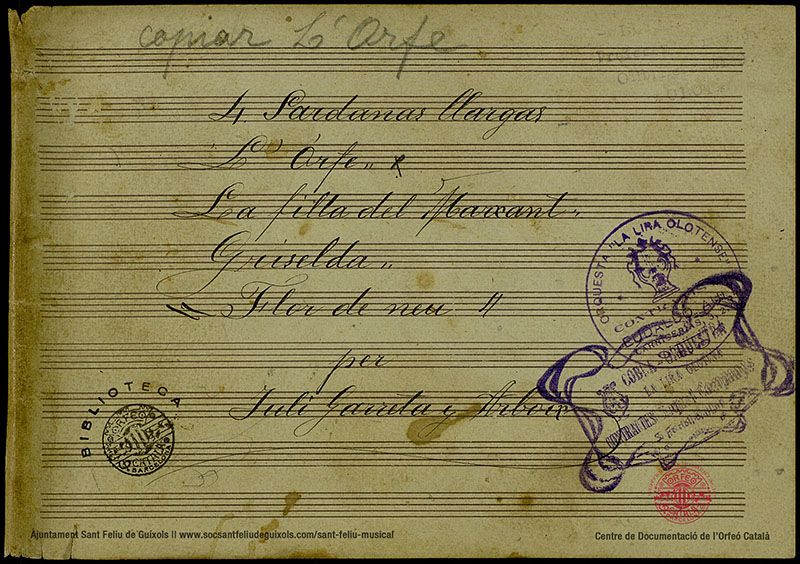 copiar L'Orfe
4 Sardanas llargas
L' Orfe„ x
La filla del Marxant„
Griselda„
" Flor de neu "
per
Juli Garreta y Arboix
ORQUESTA "LA LIRA OLOTENSE"
COBLA-ORQUESTA
LA LIRA
BIBLIOTECA
ORFEO CATALA
BARCELONA
ORFEO CATALA
Ajuntament Sant Feliu de Guíxols II www.socsantfeliudeguixols.com/sant-feliu-musical
Centre de Documentació de l'Orfeó Català